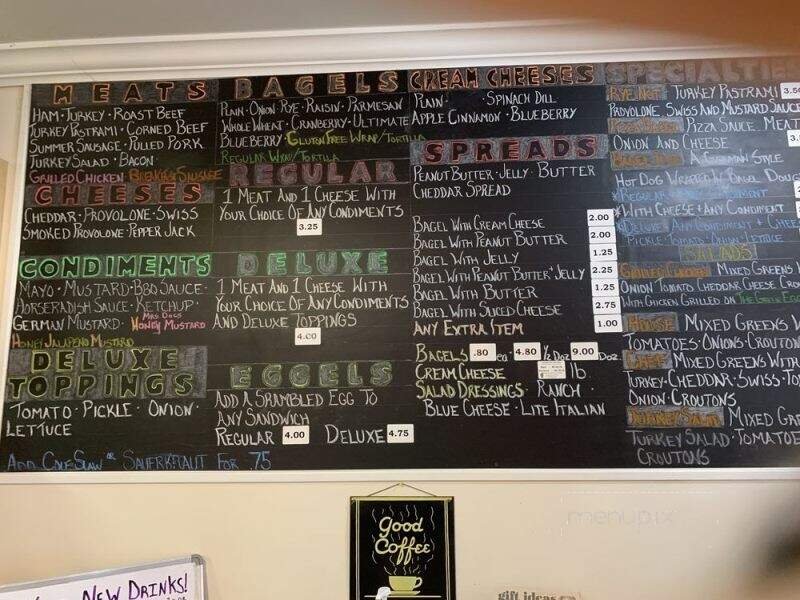 MEATS
HAM · TURKEY · ROAST BEEF
TURKEY PASTRAMI · CORNED BEEF
SUMMER SAUSAGE · PULLED PORK
TURKEY SALAD · BACON
GRILLED CHICKEN
CHEESES
CHEDDAR · PROVOLONE · SWISS
SMOKED PROVOLONE · PEPPER JACK
CONDIMENTS
MAYO · MUSTARD · BBQ SAUCE ·
HORSERADISH SAUCE · KETCHUP ·
GERMAN MUSTARD · MRS. DOGS HONEY MUSTARD
HONEY JALAPENO MUSTARD
DELUXE
TOPPINGS
TOMATO · PICKLE · ONION ·
LETTUCE
ADD COLE SLAW OR SAUERKRAUT FOR .75
BAGELS
PLAIN · ONION · RYE · RAISIN · PARMESAN
WHOLE WHEAT · CRANBERRY · ULTIMATE
BLUEBERRY · GLUTEN FREE WRAP/TORTILLA
REGULAR WRAP/TORTILLA
REGULAR
1 MEAT AND 1 CHEESE WITH
YOUR CHOICE OF ANY CONDIMENTS
3.25
DELUXE
1 MEAT AND 1 CHEESE WITH
YOUR CHOICE OF ANY CONDIMENTS
AND DELUXE TOPPINGS
4.00
EGGELS
ADD A SRAMBLED EGG TO
ANY SANDWICH
REGULAR 4.00 DELUXE 4.75
CREAM CHEESES
PLAIN · SPINACH DILL
APPLE CINNAMON · BLUEBERRY
SPREADS
PEANUT BUTTER · JELLY · BUTTER
CHEDDAR SPREAD
BAGEL WITH CREAM CHEESE 2.00
BAGEL WITH PEANUT BUTTER 2.00
BAGEL WITH JELLY 1.25
BAGEL WITH PEANUT BUTTER + JELLY 2.25
BAGEL WITH BUTTER 1.25
BAGEL WITH SLICED CHEESE 2.75
ANY EXTRA ITEM 1.00
BAGELS .80 ea · 4.80 ½ Doz · 9.00 Doz.
CREAM CHEESE lb
SALAD DRESSINGS · RANCH ·
BLUE CHEESE · LITE ITALIAN
SPECIALTIES
RYE NOT TURKEY PASTRAMI 3.50
PROVOLONE SWISS AND MUSTARD SAUCE
PIZZA SAUCE MEAT
ONION AND CHEESE
A GERMAN STYLE
HOT DOG WRAPPED IN BAGEL DOUGH
REGULAR CONDIMENT
WITH CHEESE + ANY CONDIMENT
DELUXE ANY CONDIMENT + CHEE
PICKLE · TOMATO · ONION · LETTUCE
SALADS
GRILLED CHICKEN MIXED GREENS W
ONION TOMATO CHEDDAR CHEESE CROU
WITH CHICKEN GRILLED ON THE
HOUSE MIXED GREENS W
TOMATOES · ONIONS · CROUTON
CHEF MIXED GREENS WITH
TURKEY · CHEDDAR · SWISS · TO
ONION · CROUTONS
TURKEY SALAD MIXED GRE
TURKEY SALAD · TOMATOE
CROUTONS
menupix
Good
Coffee
NEW DRINKS!
gift ideas